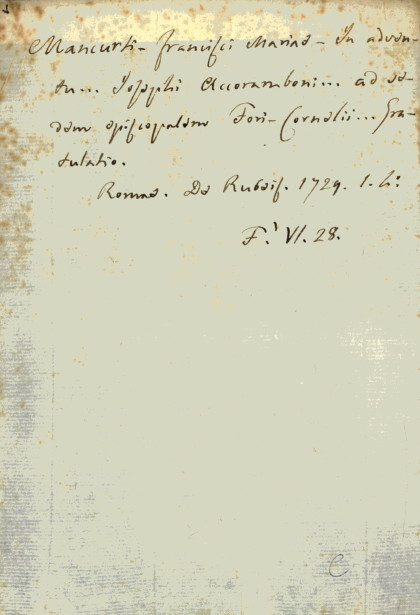 Mancurti - Francisci Mariae - In adven-
tu... Josephi Accoramboni... ad se-
dem episcopalem Fori-Cornelii... Gra-
tulatio.
Romae. De Rubeis. 1729. 1. 4:
F.' VI. 28.
C